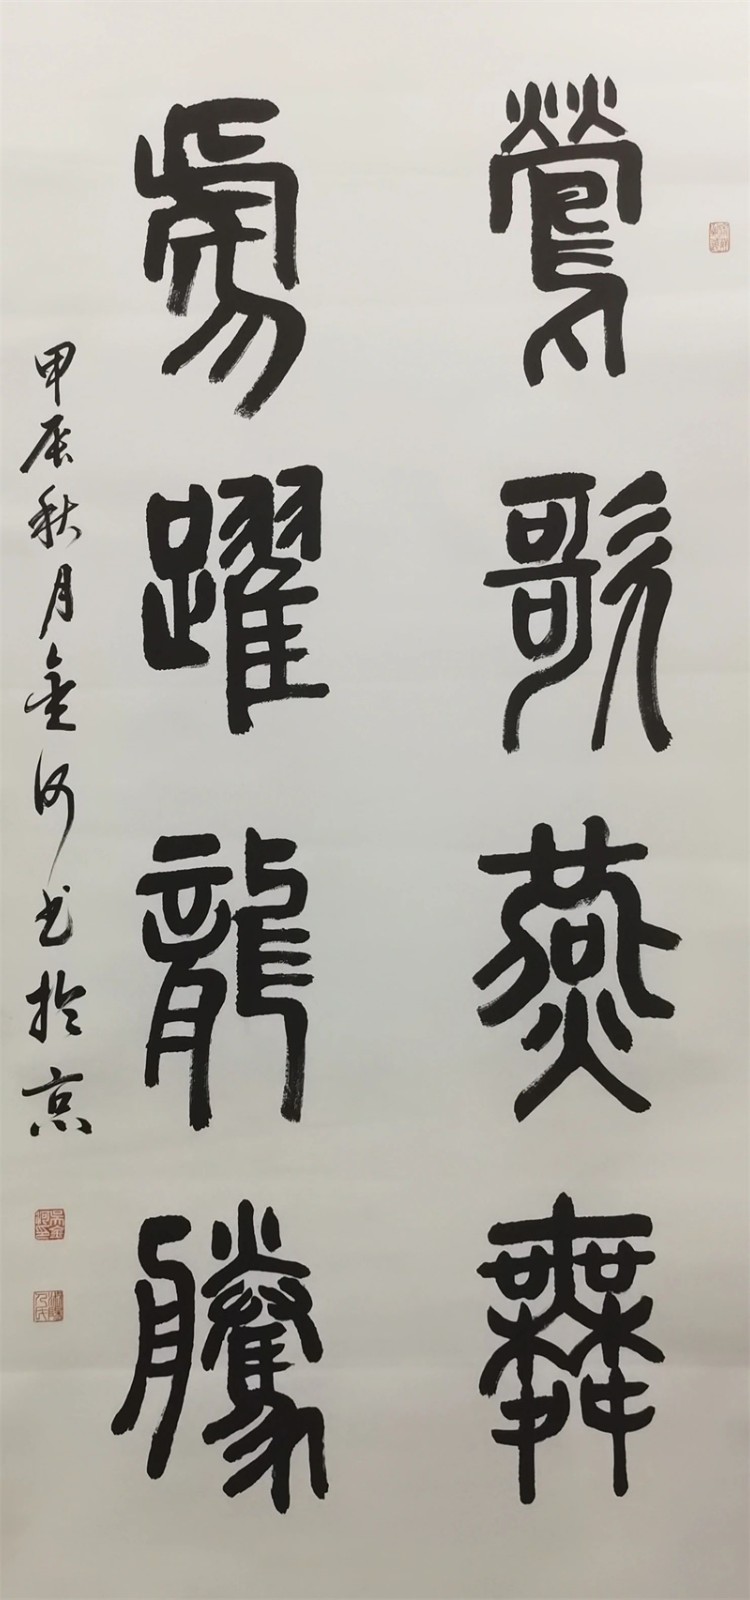 鶯歌燕舞
虎躍龍騰
甲辰秋月金河书於京